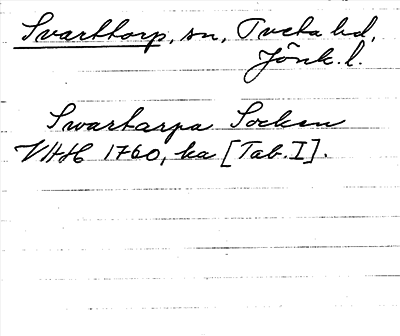 Svarttorp, sn, Tveta hd,
Jönk. l.
Swartarpa Socken
VHH 1760, ka [Tab. I].